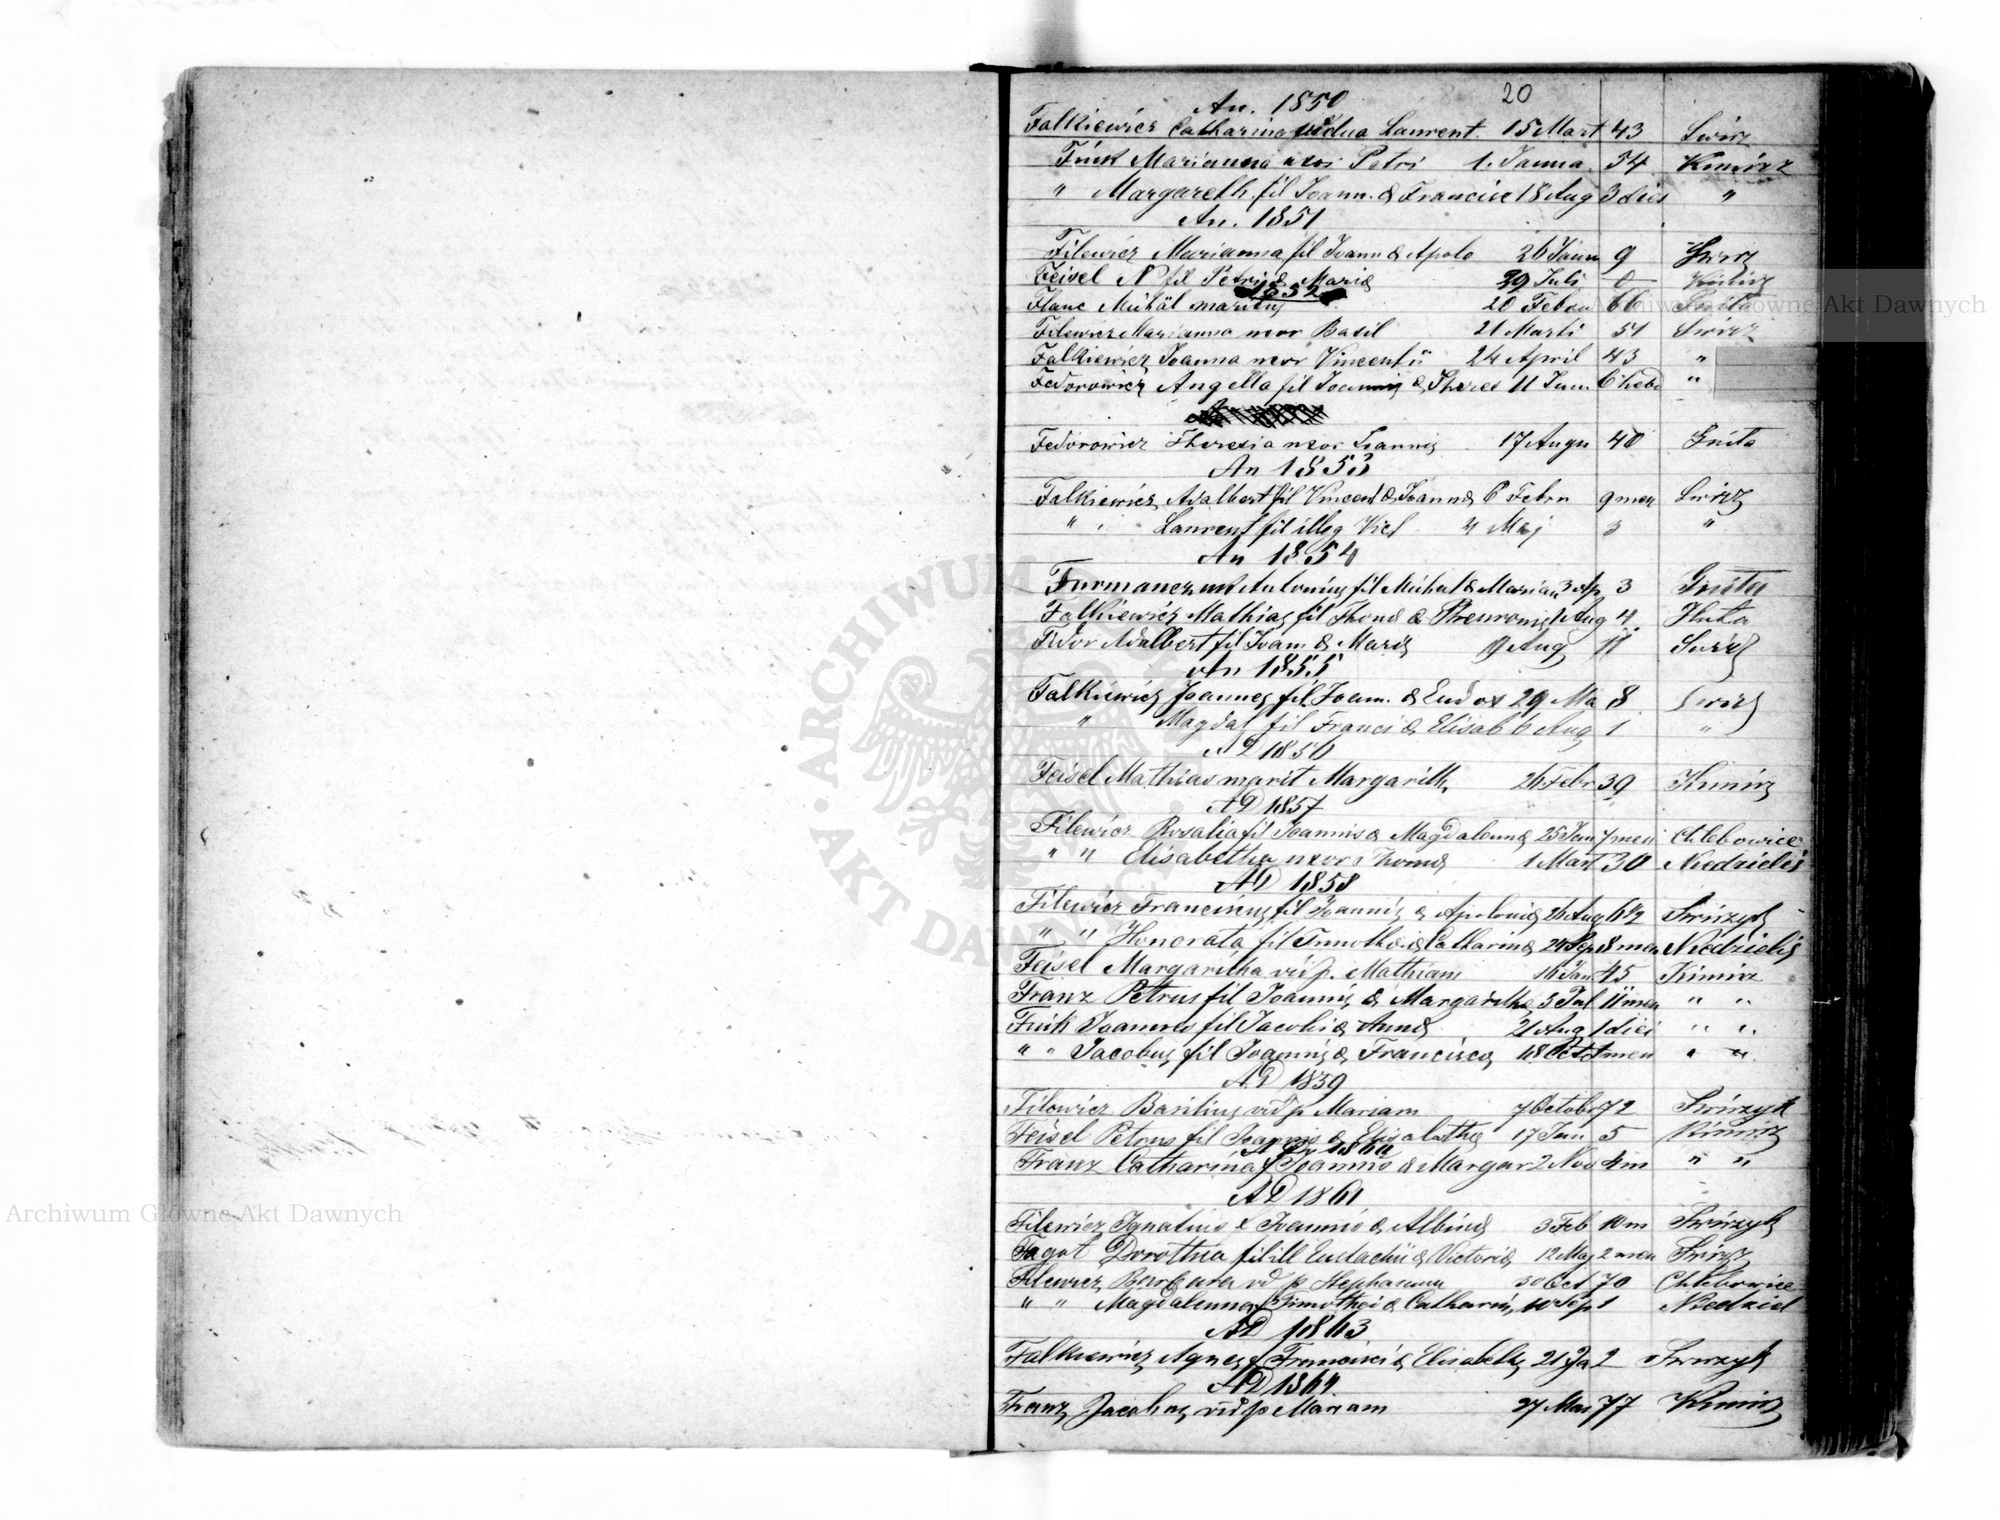 20
An. 1850
Falkiewicz Catharina vidua Laurent. 15 Mart 43 Swirz
Fink Marianna uxor Petri 1. Janua. 54 Kimirz
" Margareth fil Joann. & Francisc 18 Aug 3 dies "
An. 1851
Filewicz Marianna fil Joann & Apolo 26 Janu 9 Swirz
Feisel N fil Petri & Maria 29 Juli 0
1852
Flanc Michäl maritus 20 Febru 66
Filewicz Marianna uxor Basil 21 Marti 51 Swirz
Falkiewicz Joanna uxor Vincentii 24 April 43 "
Fedorowicz Angella fil Joannis & Theres 11 Jun. 6 hebd "
Fedorowicz Theresia uxor Joannis 17 Augu 40 Hnita
An 1853
Falkiewicz Adalbert fil Vincent & Joanna 6 Febru 9 men Swirz
" Laurent fil illeg Vict 4 Maj 3 "
An 1854
Antonius fil Michal & Marian 3 Ap 3
Falkiewicz Mathias fil Thoma & 1 Aug 4 Huta
Fedor Adalbert fil Joann & Maria 9 Aug 11 Swirz
An 1855
Falkiewicz Joannes fil Joann. & Eudox 29 Ma 8 Swirz
" Magdal fil Franci & Elisab 6 Aug 1 "
AD 1856
Feisel Mathias marit Margarith. 26 Febr 39 Kimirz
AD 1857
Filewicz Rosalia fil Joannis & Magdalenna 25 Jan 7 men Chlebowice
" " Elisabetha uxor Thoma 1 Mart 30 Niedzielis
AD 1858
Filewicz Franciscus fil Joannis & Apolonia 26 Aug 6½ Swirzyk
" " Honorata fil Timothei & Catharina 24 Sep 8 men Niedzielis
Feisel Margaritha vid p. Mathiam 16 Jan 45 Kimirz
Franz Petrus fil Joannis & Margaritha 3 Jul 11 men " "
Fink Joannes fil Jacobi & Anna 21 Aug 1 diei " "
" " Jacobus fil Joannis & Francisca 18 men " "
AD 1859
Filewicz Basilius vid p Mariam 7 Octobr 72 Swirzyk
Feisel Petrus fil Joannis & Elisabetha 17 Jan 5 Kimirz
AD 1860
Franz Catharina f Joannis & Margar 2 Nov 4 m " "
AD 1861
Filewicz Ignatius f Joannis & Albina 3 Feb 10 m Swirzyk
Fagot Dorothea fil ill Eustachii & Victoria 12 Maj 2 men Swirz
Filewicz Barbara vid p Stephanum 30 Oct 70 Chlebowice
" " Magdalenna f Timothei & Catharin 10 Sep 1 Niedziel
AD 1863
Falkiewicz Agnes f Francisci & Elisabeth 21 Ja 2 Swirzyk
AD 1864
Franz Jacobus vid p Mariam 27 Mar 77 Kimirz
Archiwum Główne Akt Dawnych
Archiwum Główne Akt Dawnych
ARCHIWUM GŁÓWNE AKT DAWNYCH